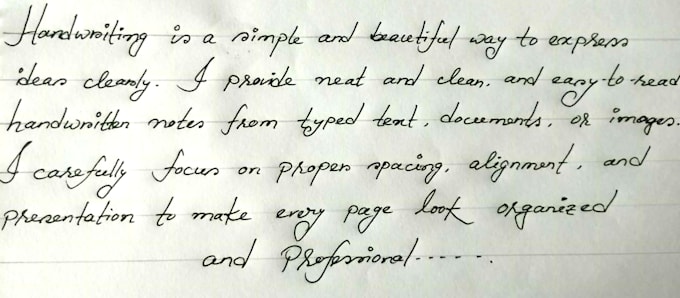 Handwriting is a simple and beautiful way to express
ideas clearly. I provide neat and clean, and easy-to-read
handwritten notes from typed text, documents, or images.
I carefully focus on proper spacing, alignment, and
presentation to make every page look organized
and Professional------.